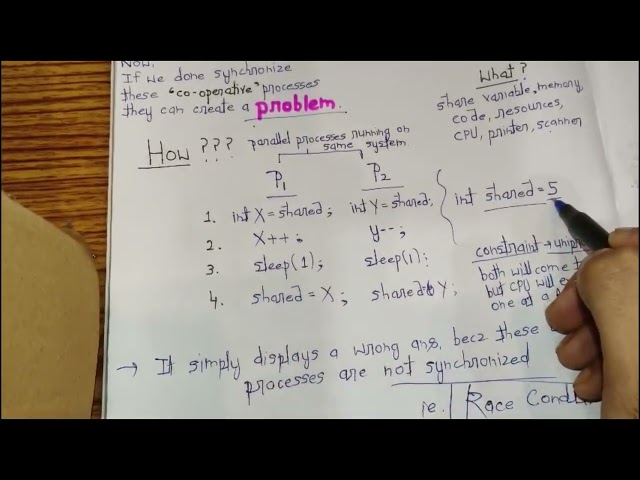 Now,
If we done synchronize
these "co-operative" processes
they can create a problem.
What?
share variable, memory,
code, resources,
CPU, printer, scanner
How ???
parallel processes running on
same system
P1 P2
1. int X = shared; int Y = shared;
2. X++; y--;
3. sleep(1); sleep(1);
4. shared = X; shared = Y;
int shared = 5
constraint →
both will come
but CPU will
one at a
→ It simply displays a wrong ans, becz these
processes are not synchronized
ie. Race